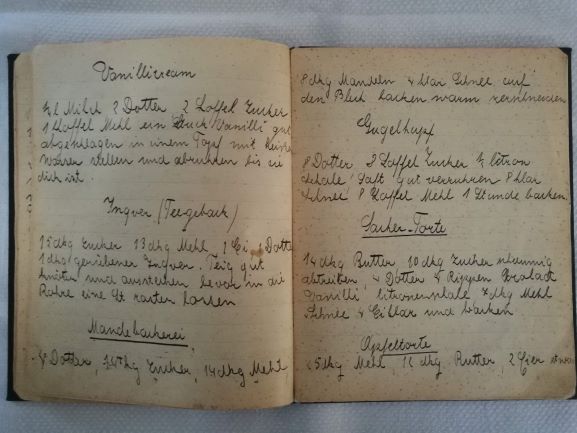 Vanillicream
½ l Milch 2 Dotter 2 Löffel Zucker
1 Löffel Mehl ein Stuck Vanilli gut
abgeschlagen in einem Topf mit
Wasser stellen und abruhren bis sie
dich ist.
Ingver (Tee-geback)
15 dkg Zucker 13 dkg Mehl 1 Ei 1 Dotter
1 dkg geriebener Ingver. Teig gut
kneten und ausstechen bevor in die
Röhre eine St rasten lassen
Mandebackerei
4 Dotter, 14 dkg Zucker, 14 dkg Mehl
8 dkg Mandeln 4 klar Schnee auf
den Blech backen warm zerschneiden
Gugelhupf
8 Dotter 8 Löffel Zucker ½ Citron
Schale Saft gut verruhren 8 klar
Schnee 8 Löffel Mehl 1 Stunde backen.
Sacher-Torte
14 dkg Butter 10 dkg Zucker schaumig
abtreiben, 4 Dotter 4 Rippen
Vanilli, Citronenschale 7 dkg Mehl
Schnee 4 Eiklar und backen
Apfeltorte
25 dkg Mehl, 12 dkg Butter, 2 Eier